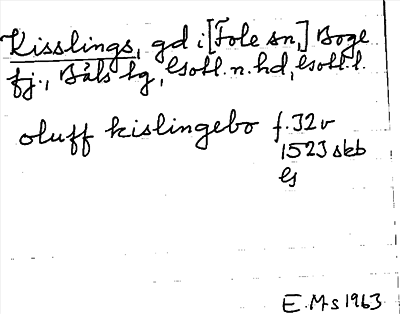 Kisslings, gd i [Fole sn,] Boge
fj., Bäls hg, Gotl. n. hd, Gotl. l.
oluff kislingebo f. 32v
1523 skb
G
E. Ms 1963